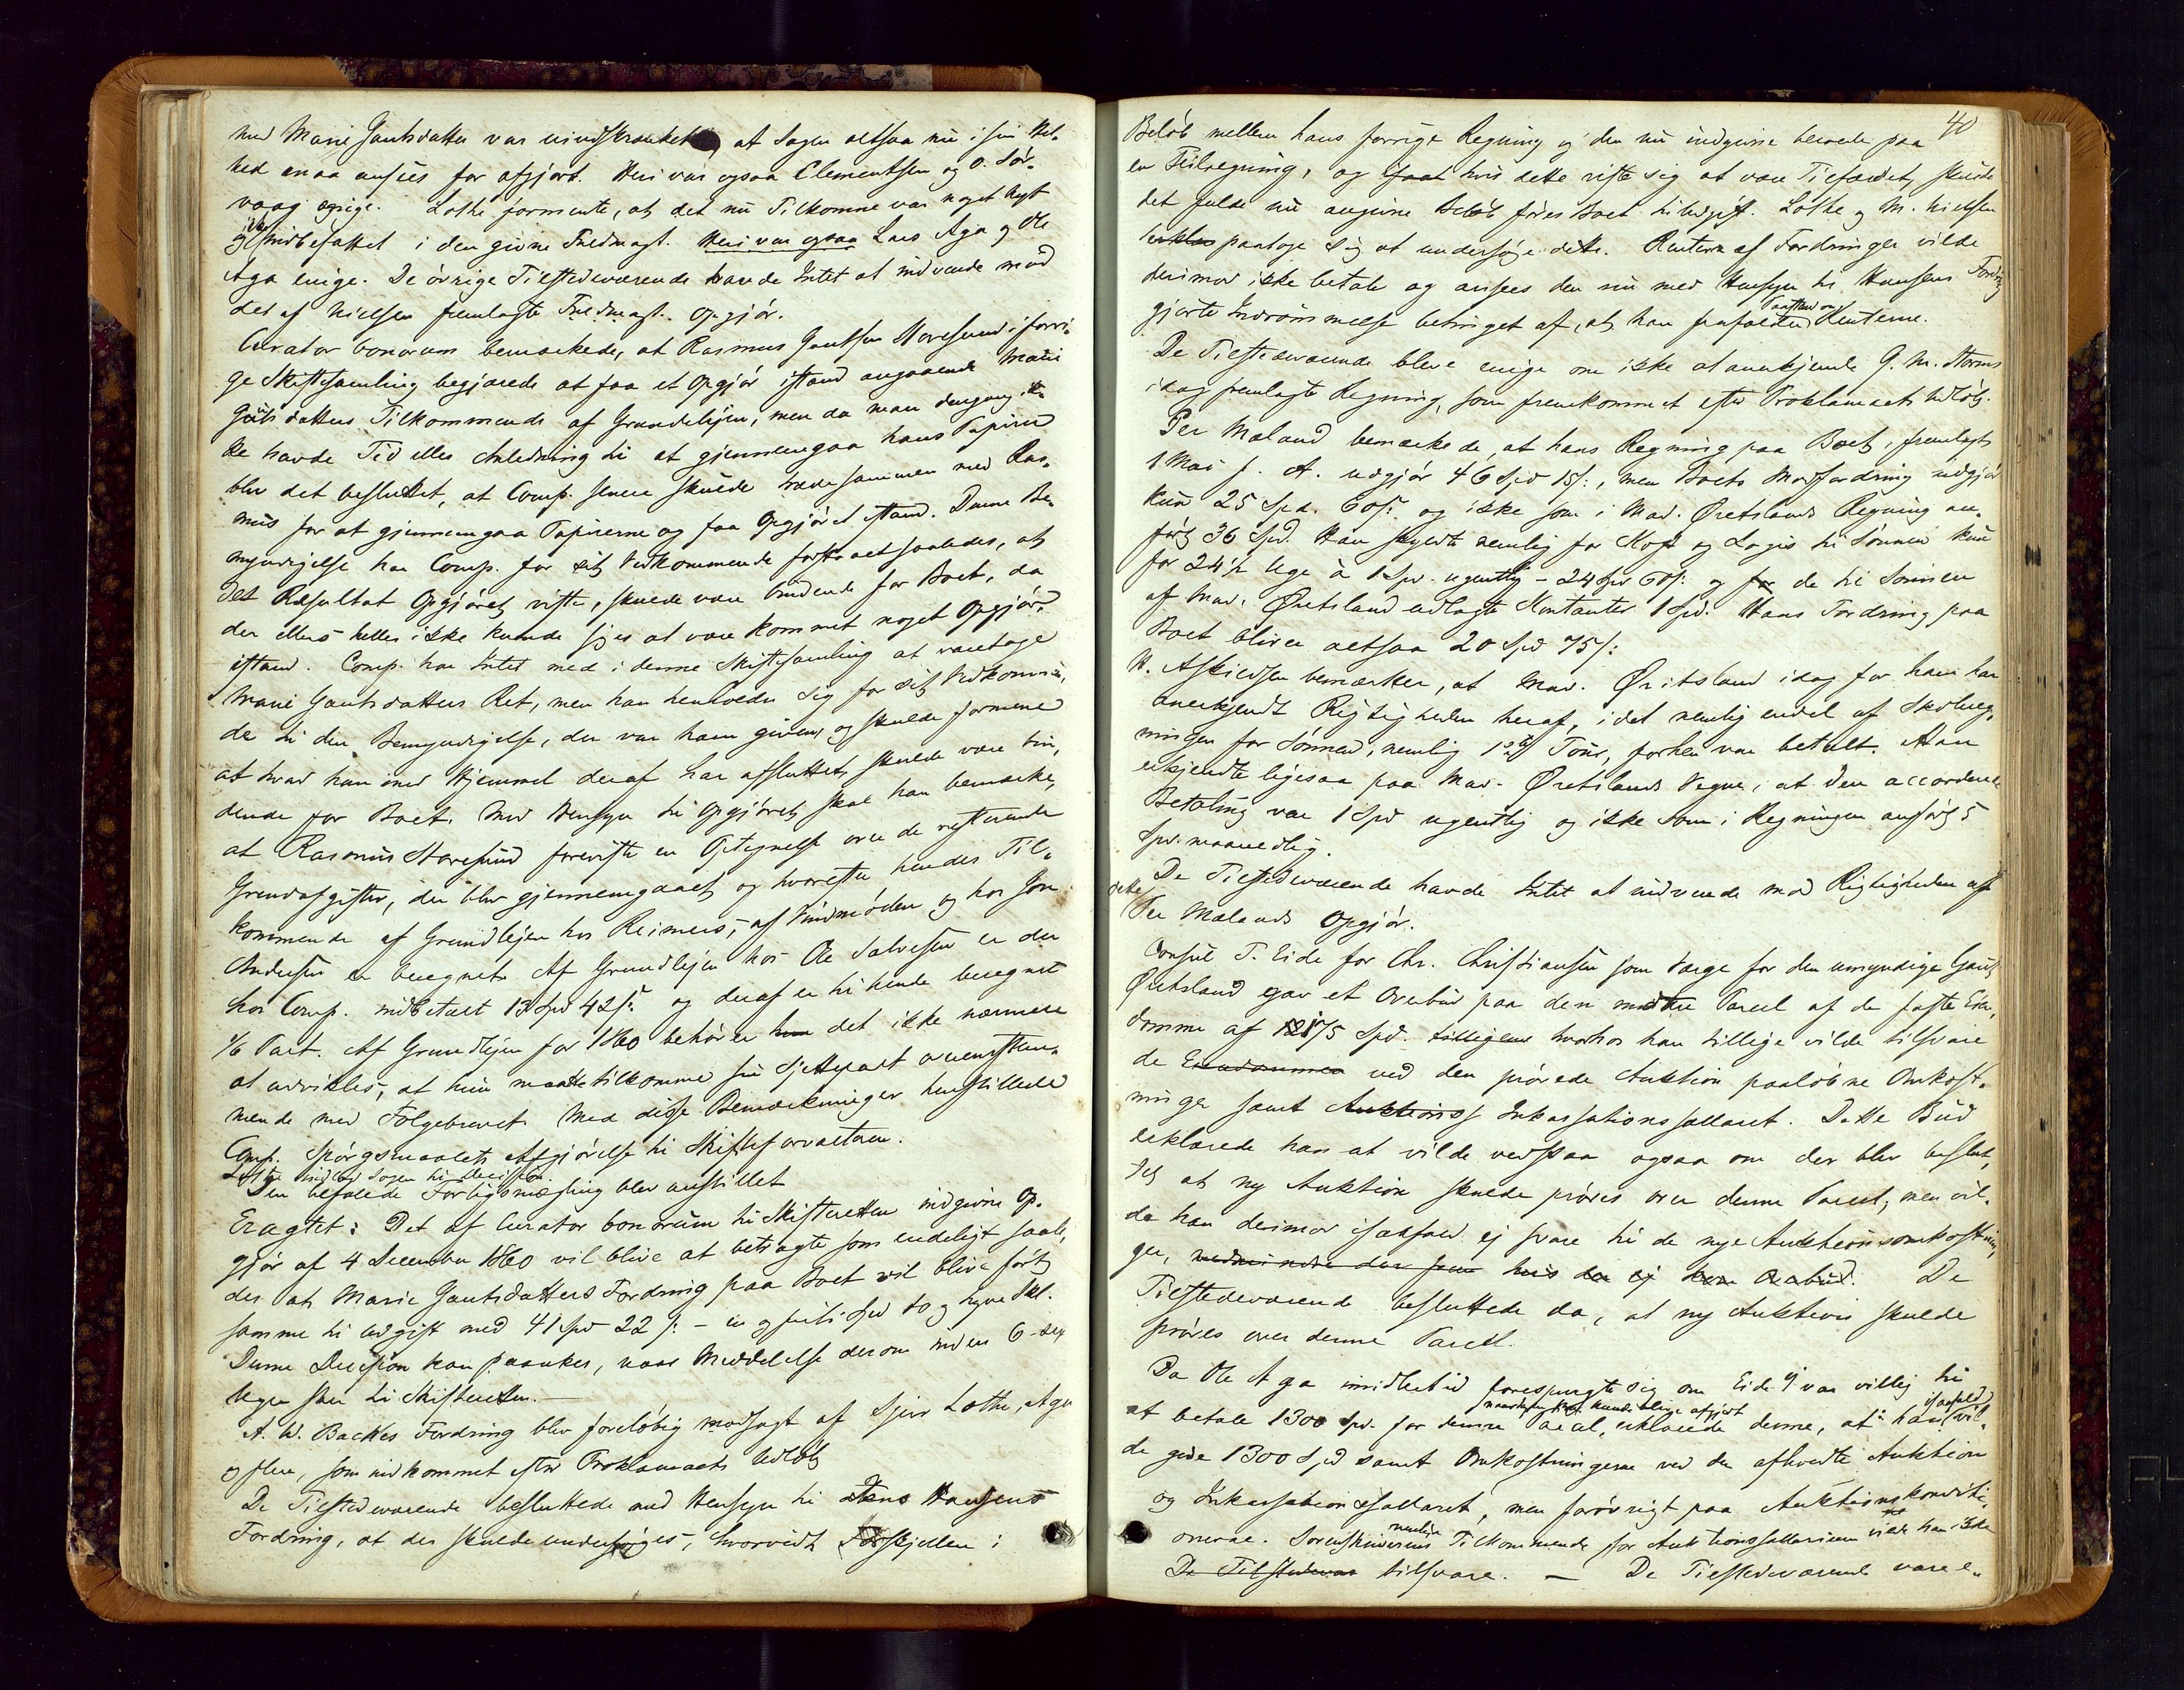 med Marie Gautsdatter var uindskrænket, at Sagen altsaa nu i sin Hel-
hed maa ansees for afgjort. Heri var ogsaa Clementsen og O. Sør-
vaag enige. Lothe formente, at det nu Tilkomne var noget Nyt
og ikke indbefattet i den givne Fuldmagt. Heri var ogsaa Lars Aga og Ole
Aga enige. De øvrige Tilstedeværende havde Intet at indvende mod
det af Nielsen fremlagte Fuldmagt. Opgjør.
Curator bonorum bemærkede, at Rasmus Gautsen Storesund i forri-
ge Skiftesamling begjærede at faa et Opgjør istand angaaende Marie
Gautsdatters Tilkommende af Grundlejen, men da man dengang ik-
ke havde Tid eller Anledning til at gjennemgaa hans Papirer
blev det besluttet, at Comp. senere skulde træde sammen med Ras-
mus for at gjennemgaa Papirerne og faa Opgjøret istand. Denne Be-
myndigelse har Comp. for sit Vedkommende forstaaet saaledes, at
det Resultat Opgjøret viste, skulde være bindende for Boet, da
der ellers heller ikke kunde siges at være kommet noget Opgjør
istand. Comp. har Intet med i denne Skiftesamling at varetage
Marie Gautsdatters Ret, men han henholder sig for sit Vedkommen-
de til den Bemyndigelse, der var ham given, og skulde formene
at hvad han med Hjemmel deraf har afsluttet skulde være bin-
dende for Boet. Med Hensyn til Opgjøret skal han bemærke,
at Rasmus Storesund foreviste en Optegnelse over de resterende
Grundafgifter, der blev gjennemgaaet og hvorefter hendes Til-
kommende af Grundlejen hos Reimers, af Vindmøllen og hos Jon
Andersen er beregnet. Af Grundlejen hos Ole Salvesen er der
hos Comp. indbetalt 13 Spd 42 ß: og deraf er til hende beregnet
1/6 Part. Af Grundlejen for 1860 behøver det ikke nærmere
at udvikles, at hun maatte tilkomme sin Sjettepart overensstem-
mende med Følgebrevet. Med disse Bemærkninger henstillede
Comp. Spørgsmaalets Afgjørelse til Skifteforvalteren.
Lothe indlod Sagen til Decision.
Den befalede Forligsmægling blev anstillet
Eragtet: Det af Curator bonorum til Skifteretten indgivne Op-
gjør af 4 December 1860 vil blive at betragte som endeligt saale-
des at Marie Gautsdatters Fordring paa Boet vil blive ført
samme til Udgift med 41 Spd 22 ß: - en og firti Spd to og tyve Skl.
Denne Decision kan paankes, naar Meddelelse derom inden 6 sex
Uger sker til Skifteretten.—
A. W. Backes Fordring blev foreløbig modsagt af Sjur Lothe, Aga
og flere, som indkommet efter Proklamaets Udløb
De Tilstedeværende besluttede med Hensyn til Jens Hansens
Fordring, at det skulde undersøges, hvorvidt Forskjellen i
40
Beløb mellem hans forrige Regning og den nu indgivne beroede paa
en Feilregning, og hvis dette viste sig at være Tilfældet, skulde
det fulde nu angivne Beløb føres Boet til Udgift. Lothe og M. Nielsen
paatoge sig at undersøge dette. Renterne af Fordringen vilde
derimod ikke betales og ansees den nu med Hensyn til Hansens Fordring
gjorte Indrømmelse betinget af, at han frafalder Paastand om Renterne.
De Tilstedeværende bleve enige om ikke at anerkjende G. M. Storms
idag fremlagte Regning, som fremkommet efter Proklamaets Udløb.
Per Mæland bemærkede, at hans Regning paa Boet, fremlagt
1 Mai f. A. udgjør 46 Spd 15 ß:, men Boets Modfordring udgjør
kun 25 Spd. 60 ß: og ikke som i Mad. Øretslands Regning an-
ført 36 Spd. Han skyldte nemlig for Kost og Logis til Sønnen kun
for 24½ Uge à 1 Spd. ugentlig - 24 Spd 60 ß: og de til Sønnen
af Mad. Øretsland udlagte Kontanter 1 Spd. Hans Fordring paa
Boet bliver altsaa 20 Spd 75 ß:
H. Askildsen bemærker, at Mad. Øritsland idag for ham har
anerkjendt Rigtigheden heraf, idet nemlig endel af Skolereg-
ningen for Sønnen, nemlig 1ste Tour, forhen var betalt. Han
erkjendte ligesaa paa Mad. Øretslands Vegne, at den accorderede
Betaling var 1 Spd ugentlig og ikke som i Regningen anført 5
Spd. maanedlig.
De Tilstedeværende havde Intet at indvende mod Rigtigheden af
dette Per Mælands Opgjør.
Consul T. Eide for Chr. Christiansen som Værge for den umyndige Gaut
Øretsland gav et Overbud paa den Parcel af de faste Eien-
domme af 1275 Spd. hvorhos han tillige vilde tilsvare
de ved den prøvede Auktion paaløbne Omkost-
ninger samt Inkassationssallaret. Dette Bud
erklærede han at vilde vedstaa ogsaa om der blev beslut-
tet at ny Auktion skulde prøves over denne Parcel; men vil-
de han derimod isaafald ej svare til de nye Auktionsomkostnin-
ger, De
Tilstedeværende besluttede da, at ny Auktion skulde
prøves over denne Parcel.
Da Ole Aga imidlertid forespurgte sig om Eide ej var villig til
at betale 1300 Spd. for denne Parcel, naar det hermed kunde blive afgjort erklærede denne, at han isaafald vil-
de give 1300 Spd samt Omkostningerne ved den afholdte Auktion
og Inkassationssallaret, men forøvrigt paa Auktionskonditi-
onerne. Sorenskriverens nemlig Tilkommende for Auktionssallarium vilde han ikke
De Tilstedevær tilsvare. — De Tilstedeværende vare e-